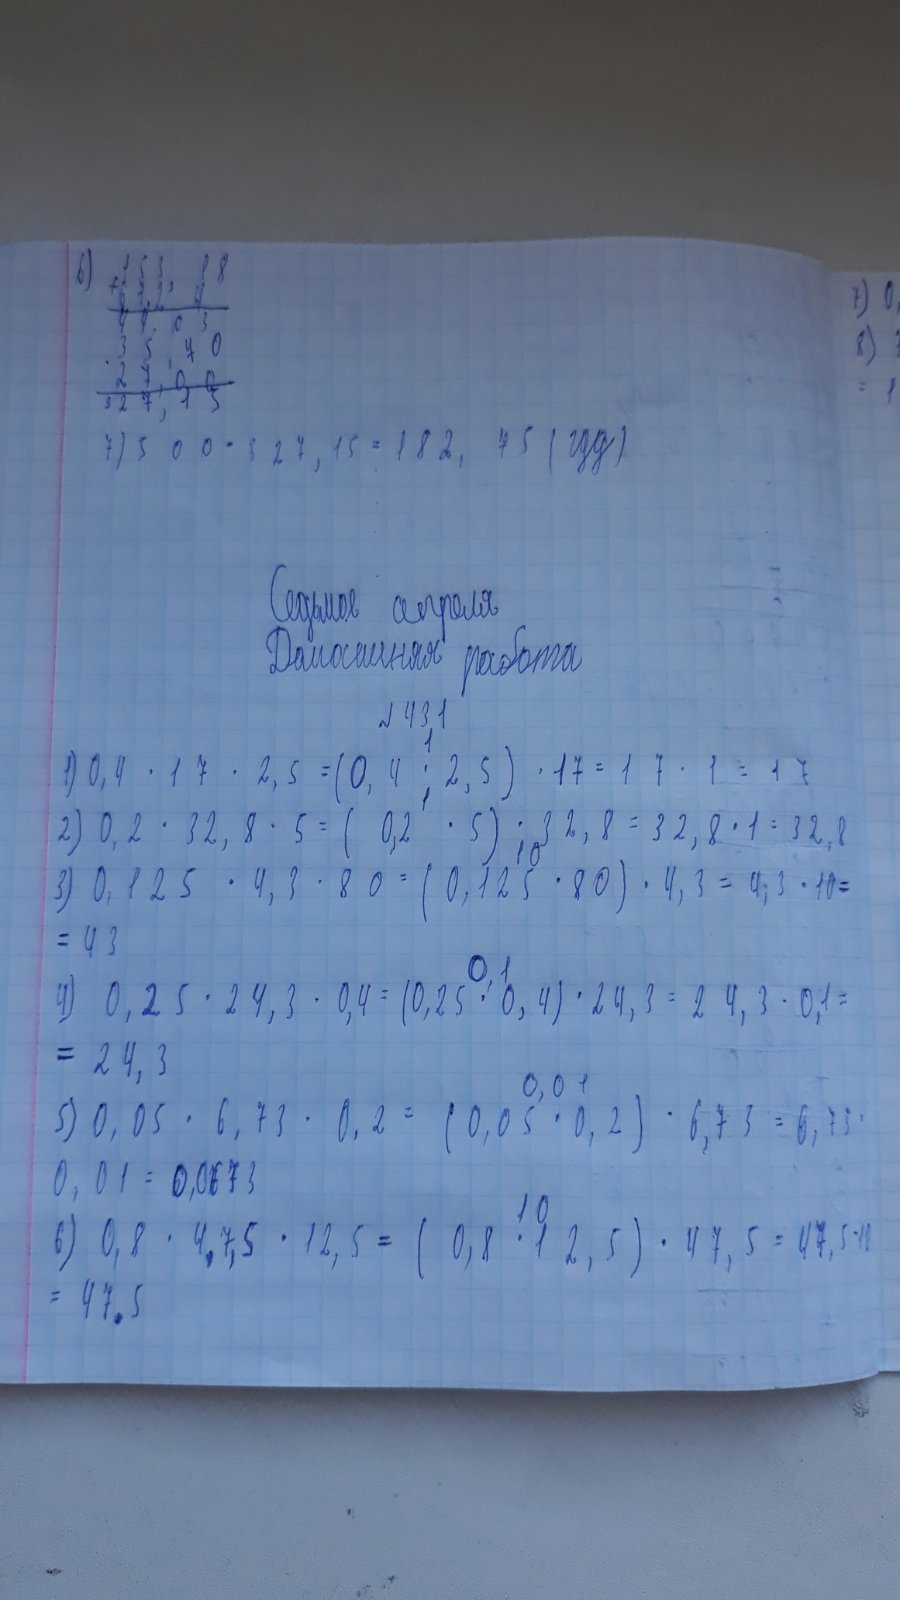 6) 153, 18
44, 03
35, 40
27, 00
327, 15
7) 500 - 327, 15 = 182, 75 (
7) 0,
8)
= 1
Седьмое апреля
Домашняя работа
№ 431
1
1) 0,4 · 17 · 2,5 = (0,4 · 2,5) · 17 = 17 · 1 = 17
1
2) 0,2 · 32,8 · 5 = (0,2 · 5) · 32,8 = 32,8 · 1 = 32,8
10
3) 0,125 · 4,3 · 80 = (0,125 · 80) · 4,3 = 4,3 · 10 =
= 43
0,1
4) 0,25 · 24,3 · 0,4 = (0,25 · 0,4) · 24,3 = 24,3 · 0,1 =
= 24,3
0,01
5) 0,05 · 6,73 · 0,2 = (0,05 · 0,2) · 6,73 = 6,73 ·
0,01 = 0,0673
10
6) 0,8 · 47,5 · 12,5 = (0,8 · 12,5) · 47,5 = 47,5 · 10
= 47.5